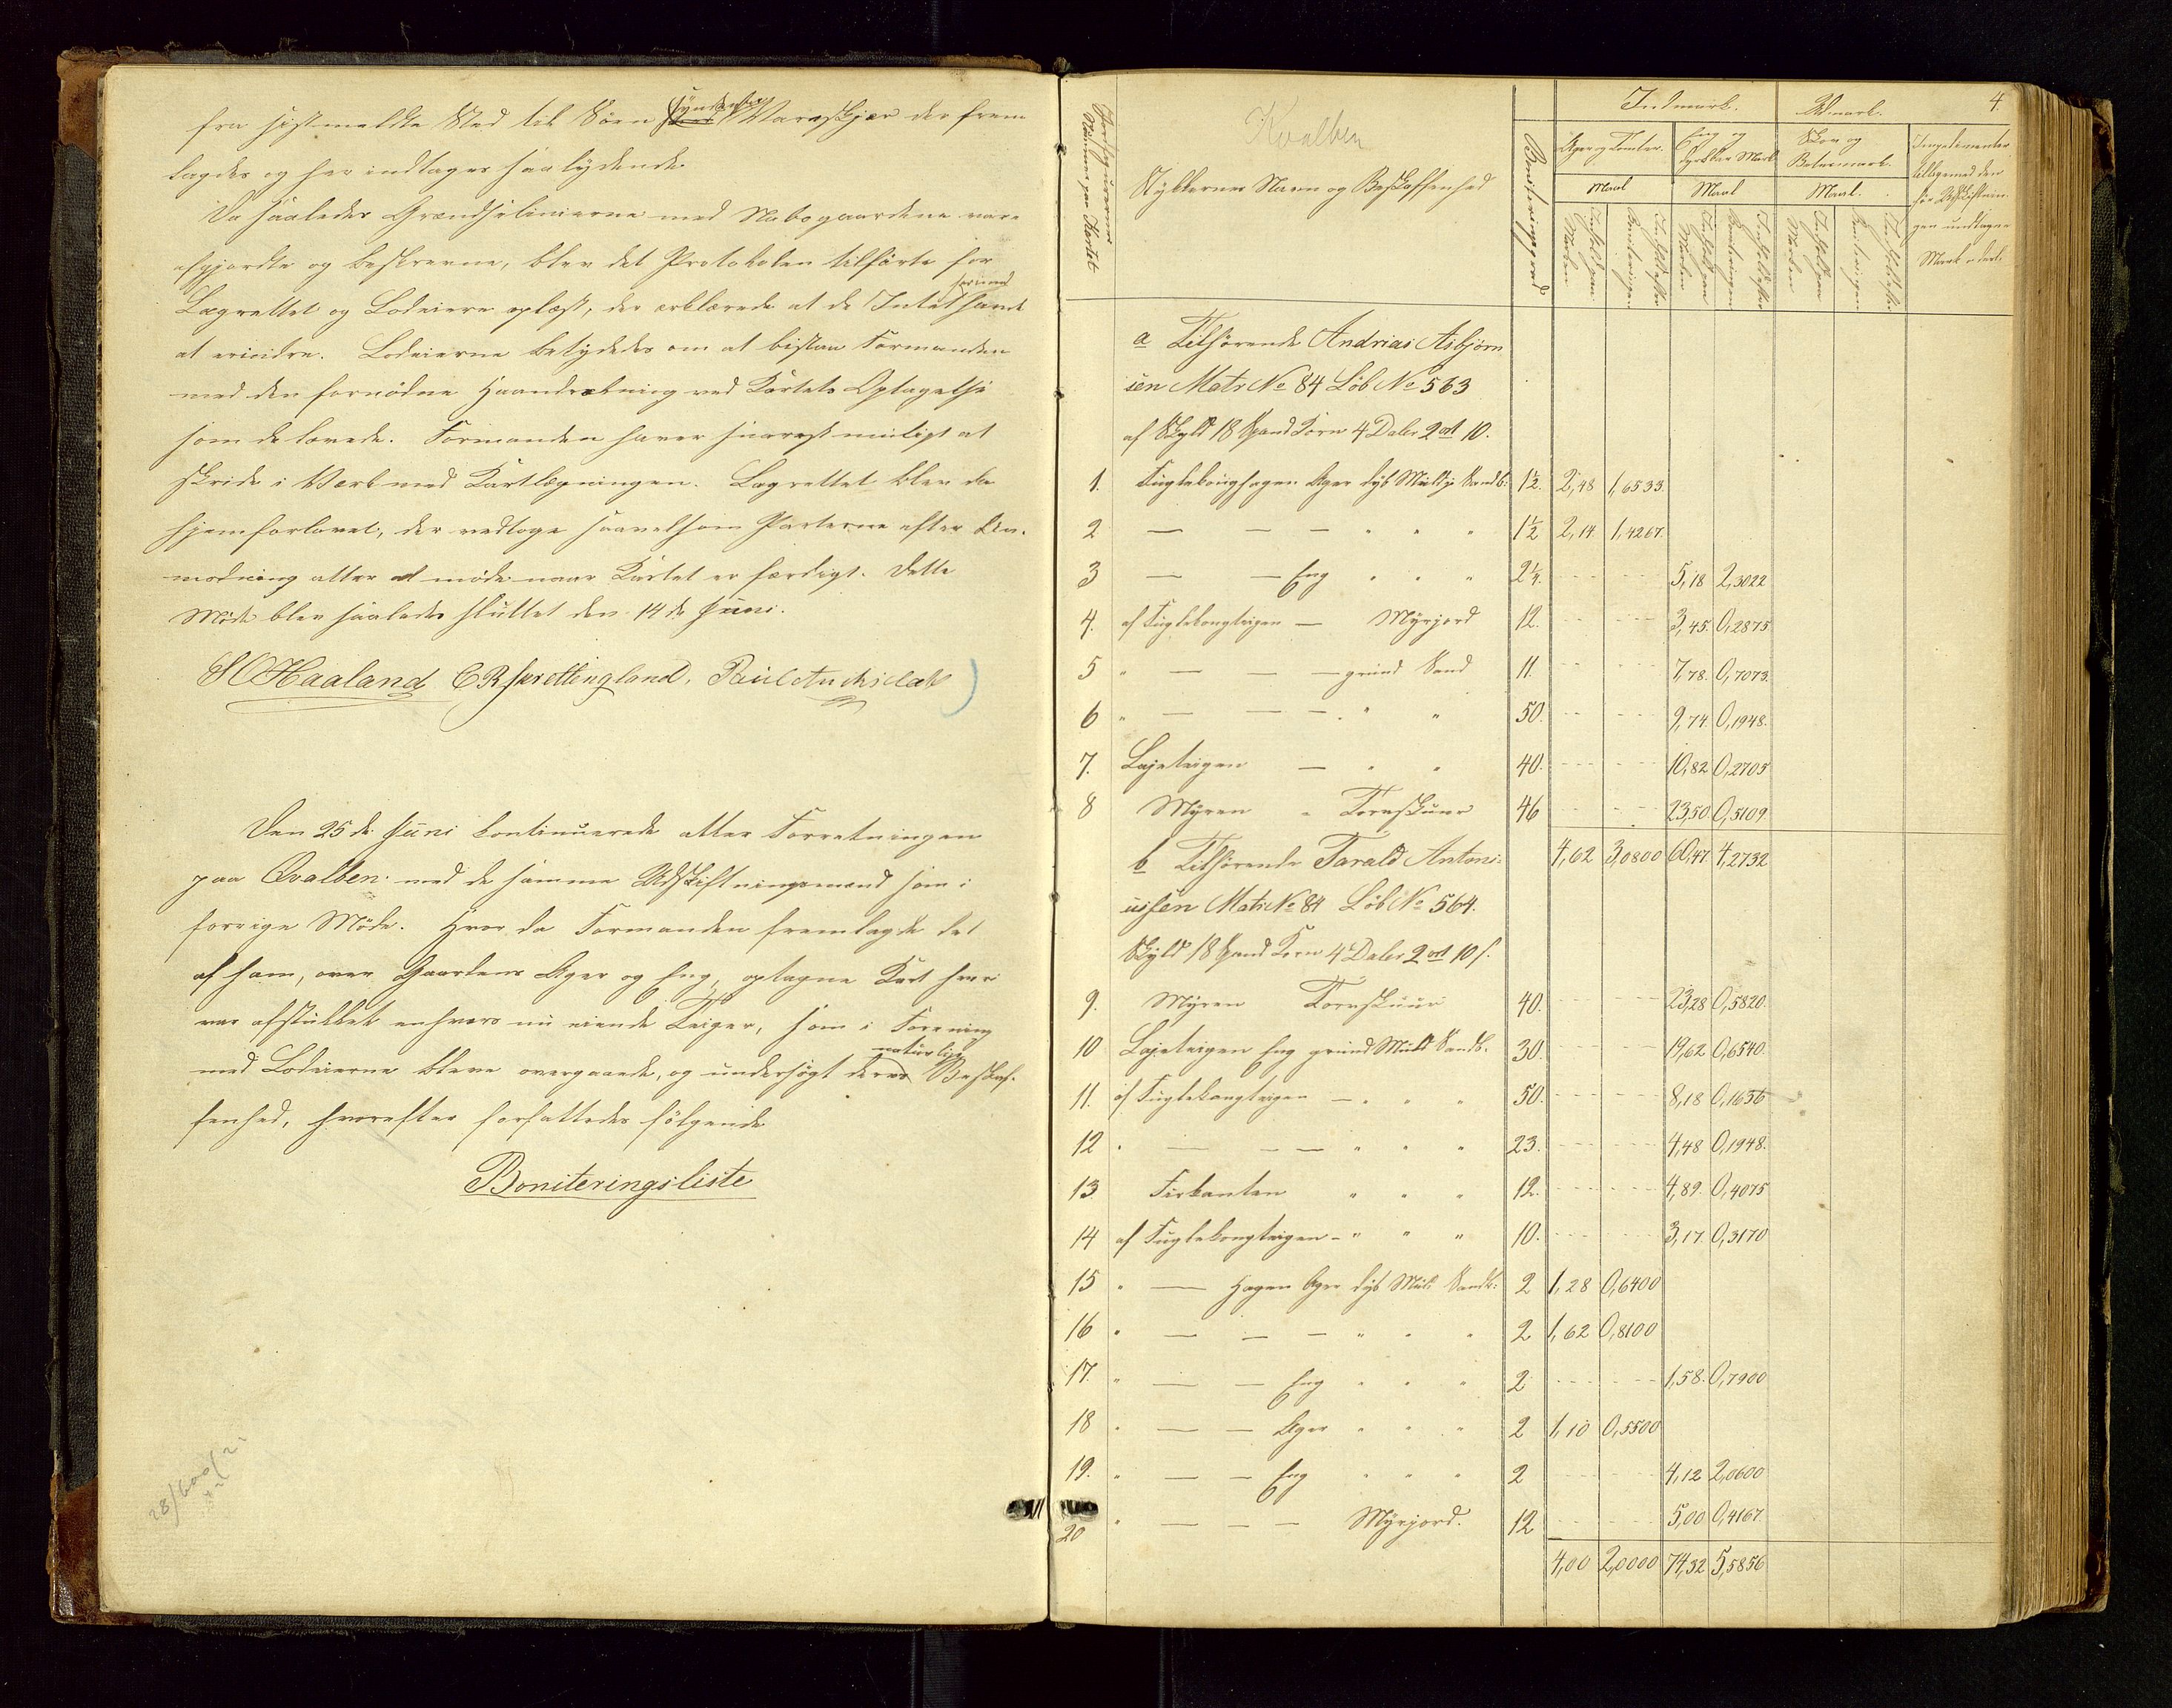 fra sistmeldte Sted til Søen Søndenfor Varaskjær der frem
lagdes og her indtages saalydende.
Da saaledes Grændselinierne med Nabogaardene vare
afgjordte og beskrevne, blev det Protokolen tilførte for
Lagrettet og Lodeiere oplæst, der erklærede at de Intet herimod havde
at erindre. Lodeierne betydedes om at bistaa Formanden
med den fornødne Haandrækning ved Kartets Optagelse
som de lovede. Formanden haver snarest muligt at
skride i Værk med Kartlægningen. Lagrettet blev da
hjemforlovet, der vedtoge saavelsom Parterne efter An-
modning atter at møde naar Kartet er færdigt. Dette
Møde blev saaledes sluttet den 14de Juni.
S O Haaland E R Sprettingland. Paul
Den 25de Juni kontinuerede atter Forretningen
paa Qvalben med de samme Udskiftningsmænd som i
forrige Møde. Hvor da Formanden fremlagde det
af ham, over Gaardens Ager og Eng, optagne Kart hvori
var afstukket enhvers nu eiende Teiger, som i Forening
med Lodeierne bleve overgaaede, og undersøgt deres naturlige Beskaf-
fenhed, hvorefter forfattedes følgende
Boniteringsliste
4.
Kvalben
Jordfigurernes Nummer paa Kartet
Stykkernes Navn og Beskaffenhed
Boniteringsgrad
Indmark.
Udmark.
Ager og Tomter.
Eng og dyrkbar Mark
Skov og Beitesmark.
Maal
Maal
Maal.
a Tilhørende Andrias Asbjørn
sen Matr № 84 Løb № 563
af Skyld 18 Spand Korn 4 Daler 2 ort 10.
1. Fuglekonghagen Ager dyb Muldj. Sandb. 1½. 2,48 1,6533.
2 — — — " " " 1½ 2,14. 1,4267.
3 — — Eng " " " 2¼. 5,18 2,3022
4. af Fuglekongteigen — Myrjord 12. 3,45. 0,2875
5 " — — — grund Sand 11. 7,78. 0,7073.
6 " — — — " " 50. 9,74. 0,1948.
7. Lajeteigen — " " 40. 10,82 0,2705
8 Myren " Torvskuur 46 23,50. 0,5109.
4,62 3,0800 60,47. 4,2732
b Tilhørende Tarald Antoni-
ussen Matr № 84 Løb № 564.
Skyld 18 Spand Korn 4 Daler 2 ort 10 s.
9. Myren Torvskuur 40. 23,28 0,5820.
10 Lajeteigen Eng grund Muld Sandb. 30. 19,62 0,6540.
11. af Fuglekongteigen — " " " 50. 8,18 0,1636
12 " — — — " " " 23. 4,48 0,1948.
13 Firkanten " " " 12. 4,89. 0,4075
14 af Fuglekongteigen — " " " 10. 3,17. 0,3170
15 " — Hagen Ager dyb Muld Sandb: 2 1,28 0,6400
16 " — — — " " " 2 1,62 0,8100
17. " — — Eng " " " 2 1,58. 0,7900
18 " — — Ager " " " 2 1,10 0,5500
19. " — — Eng " " " 2 4,12 2,0600
20 " — — — Myrjord. 12 5,00 0,4167.
4,00 2,0000 74,32 5,5856